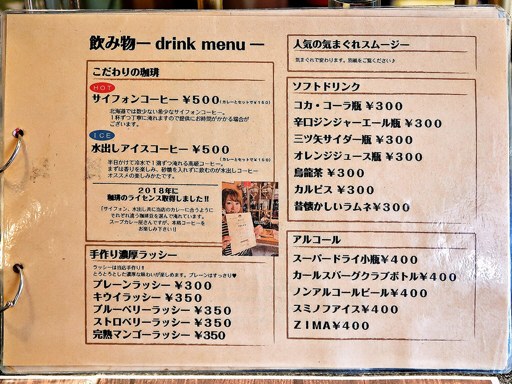 飲み物― drink menu ―
こだわりの珈琲
HOT
サイフォンコーヒー ¥500(カレーとセットで¥150)
北海道では数少ない希少なサイフォンコーヒー。
1杯ずつ丁寧に淹れますので提供にお時間がかかる場合が
ございます。
ICE
水出しアイスコーヒー ¥500
(カレーとセットで¥150)
半日かけて冷水で1滴ずつ淹れる高級コーヒー。
まずは香りを楽しみ、砂糖を入れずに飲むのが水出しコーヒー
オススメの楽しみかたです。
2018年に
珈琲のライセンス取得しました!!
「サイフォン、水出し共に当店のカレーに合うように
それぞれ違う珈琲豆を選んで淹れています。
スープカレー屋さんですが、本格コーヒーを
お楽しみ下さい!」
手作り濃厚ラッシー
ラッシーは当店手作り!!
とろっとした濃厚な味わいが楽しめます。プレーンはすっきり♥
プレーンラッシー ¥300
キウイラッシー ¥350
ブルーベリーラッシー ¥350
ストロベリーラッシー ¥350
完熟マンゴーラッシー ¥350
人気の気まぐれスムージー
気まぐれで変わります。別紙をご覧ください♪
ソフトドリンク
コカ・コーラ瓶 ¥300
辛口ジンジャーエール瓶 ¥300
三ツ矢サイダー瓶 ¥300
オレンジジュース瓶 ¥300
烏龍茶 ¥300
カルピス ¥300
昔懐かしいラムネ¥300
アルコール
スーパードライ小瓶¥400
カールスバーグクラブボトル¥400
ノンアルコールビール¥400
スミノフアイス¥400
ZIMA¥400